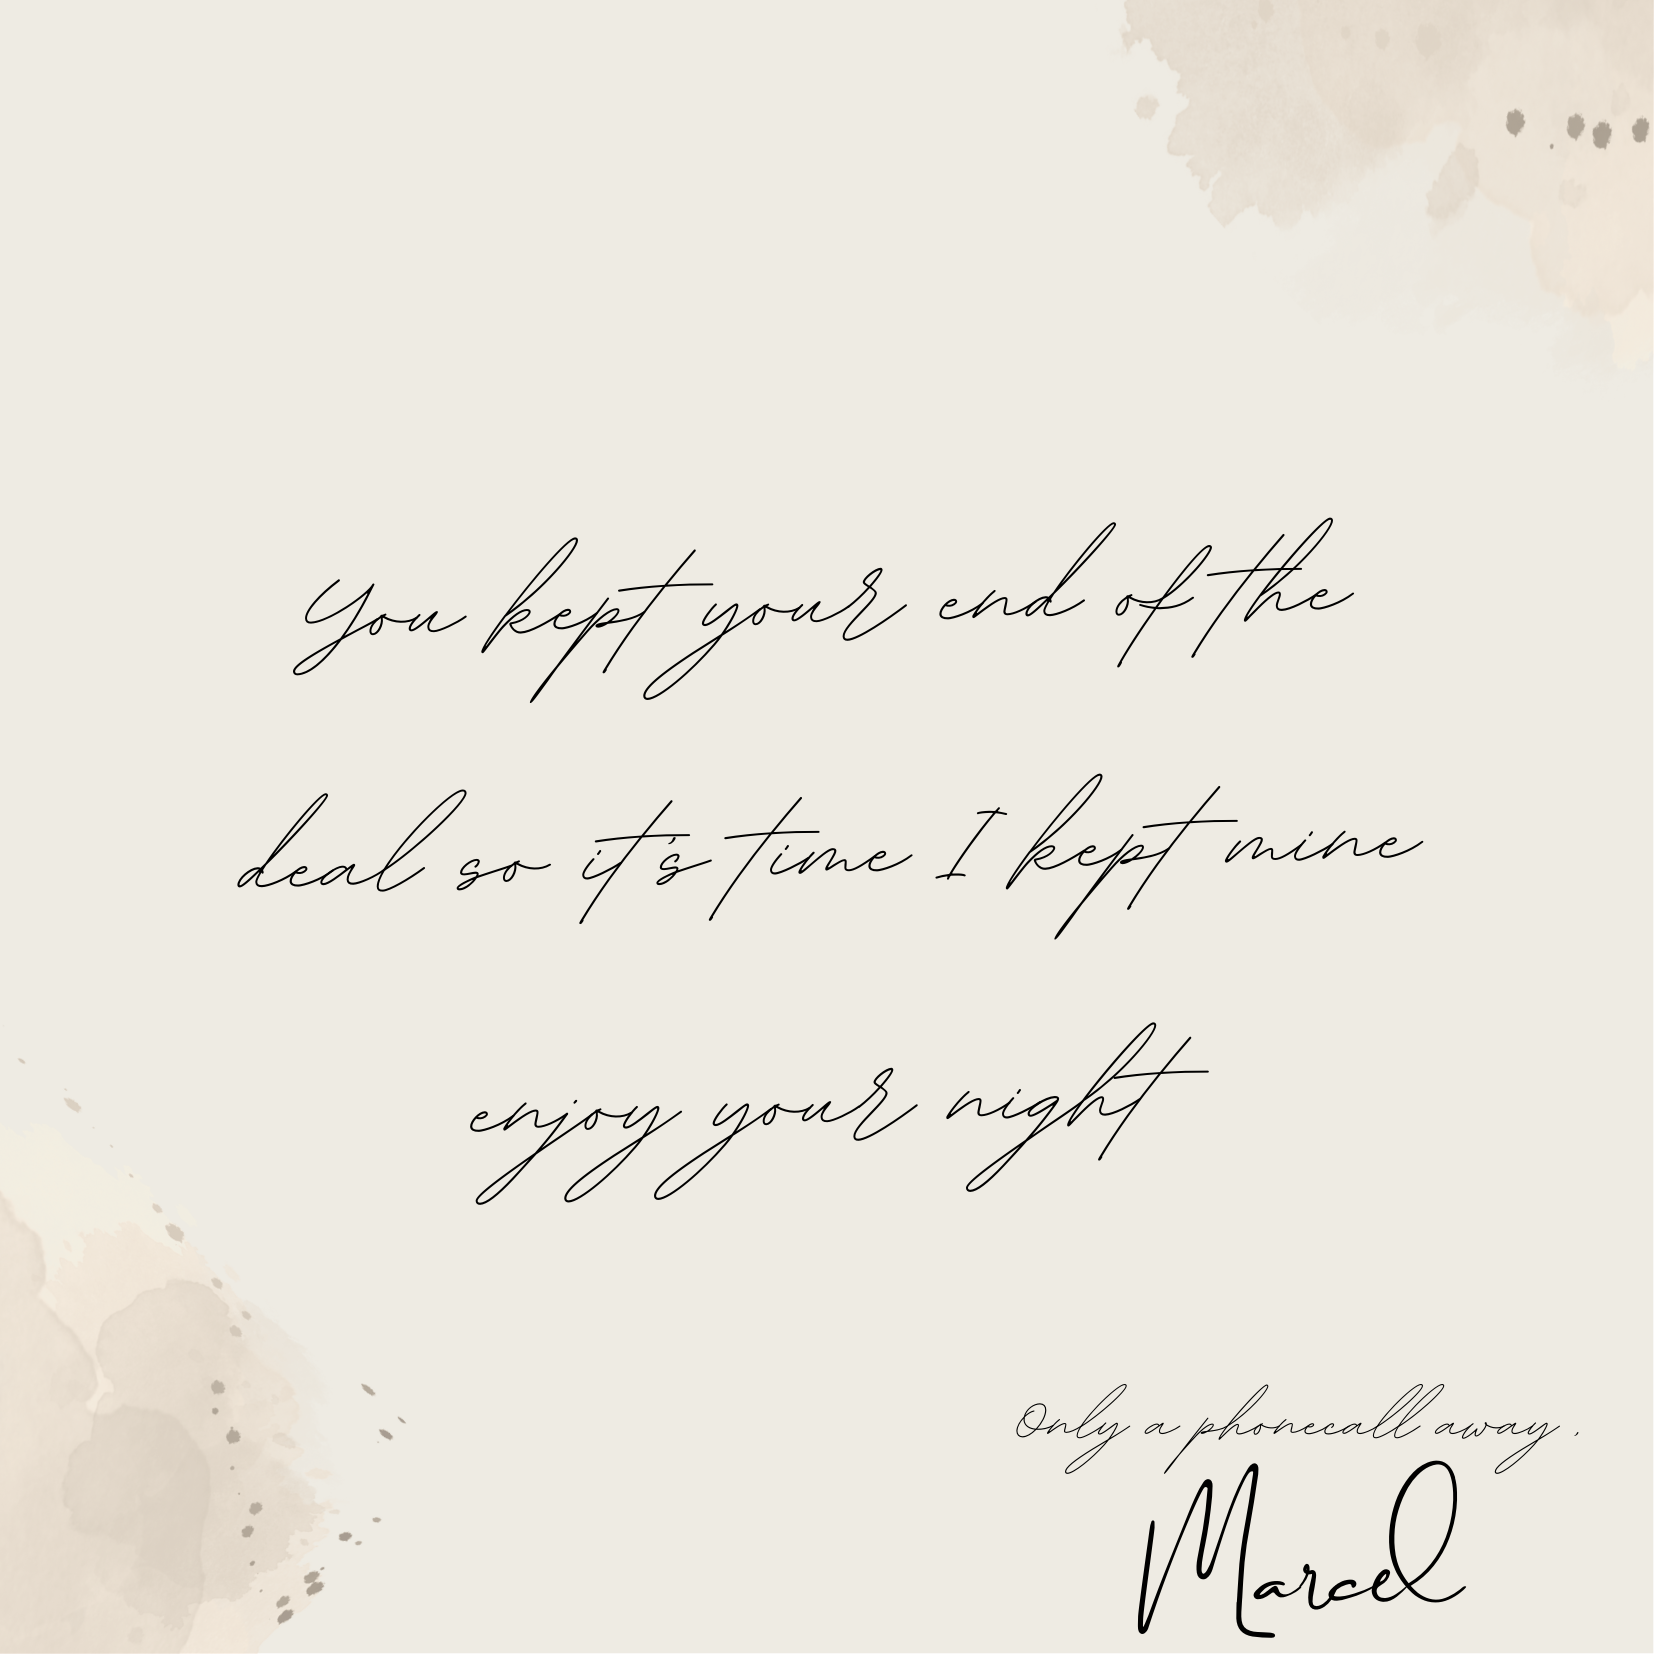 You kept your end of the
deal so it's time I kept mine
enjoy your night
Only a phonecall away .
Marcel